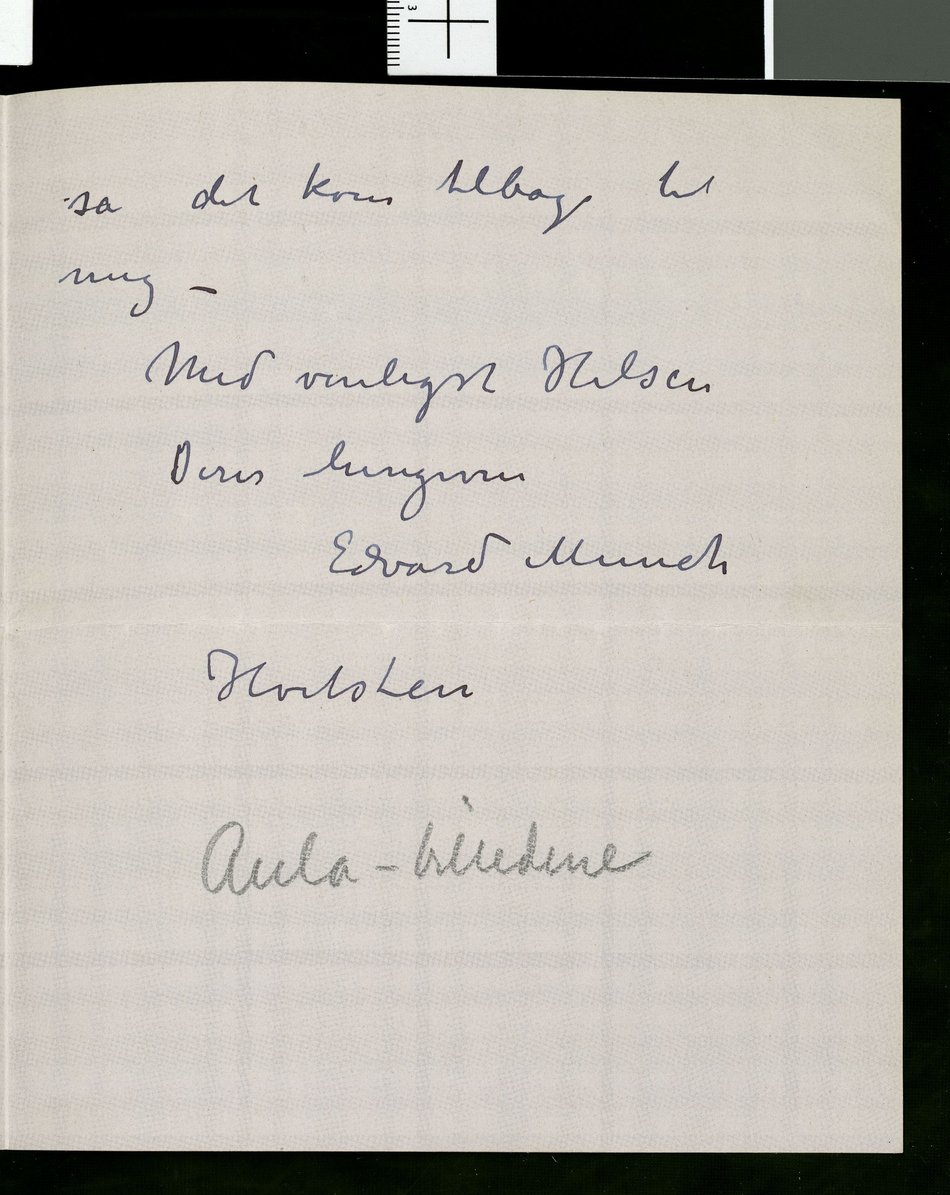 sa det kom tilbage til
mig –
Med venligst Hilsen
Deres hengivne
Edvard Munch
Hvitsten
Aula – billedene